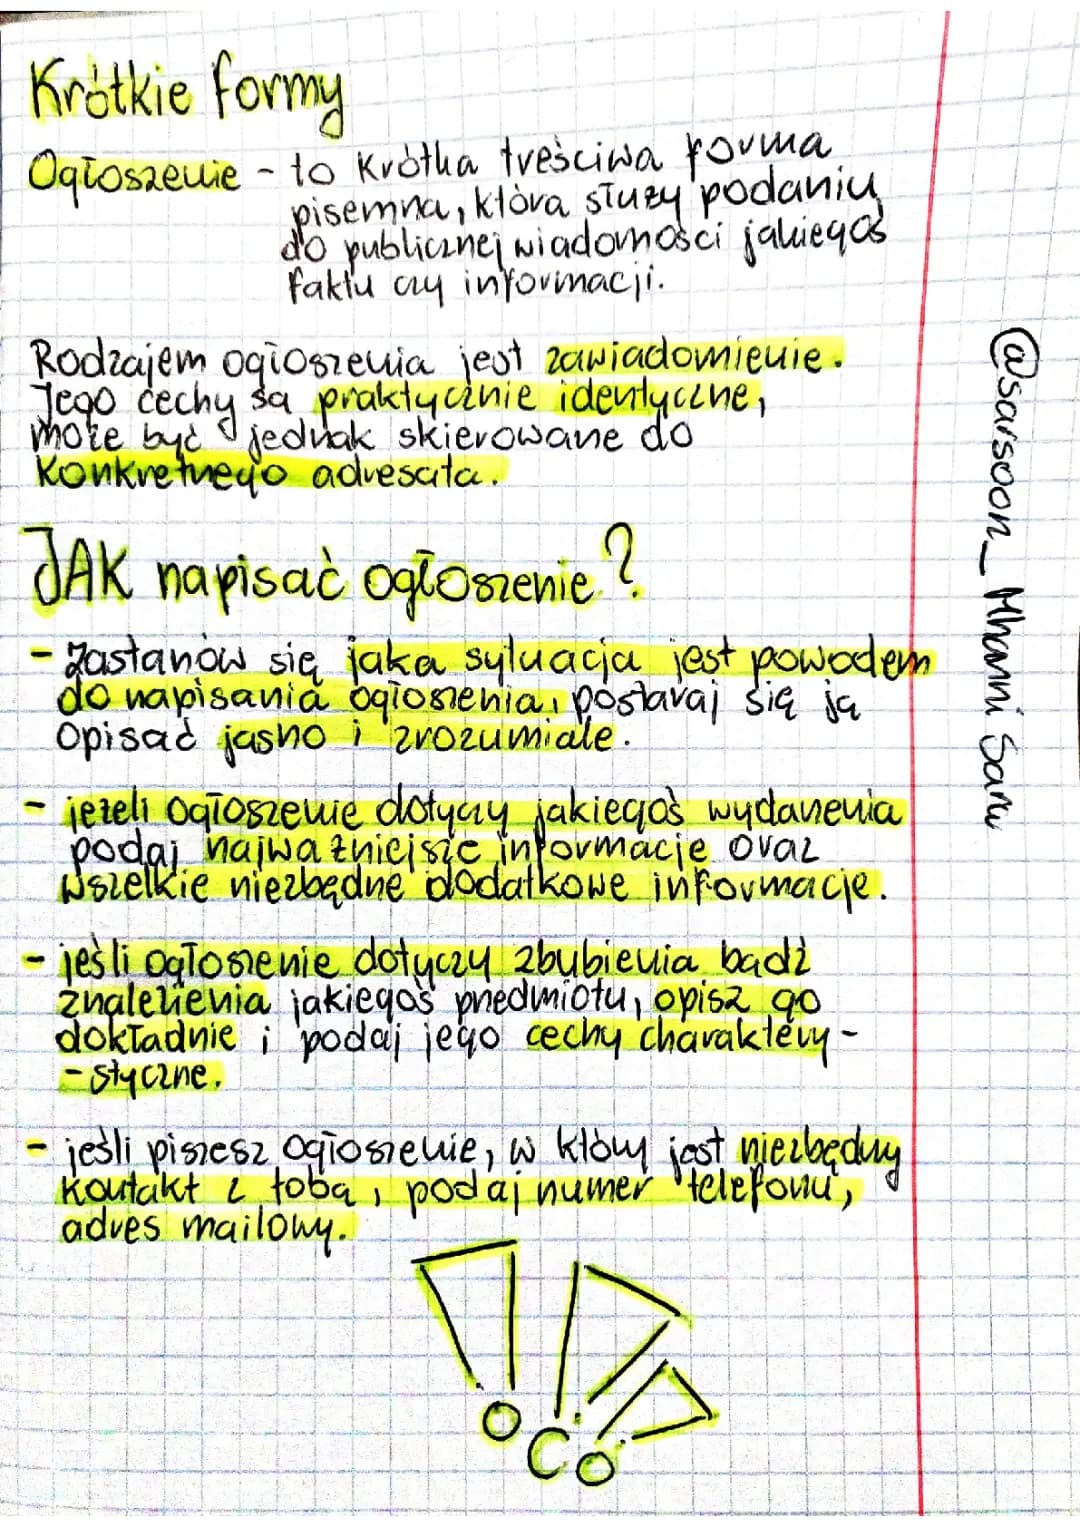 Krótkie formy
Ogłoszenie - to krótka treściwa forma
pisemna, która służy podaniu
do publicznej wiadomości jakiegoś
faktu czy informacji.
Rodzajem ogłoszenia jest zawiadomienie.
Jego cechy są praktycznie identyczne,
może być jednak skierowane do
konkretnego adresata.
JAK napisać ogłoszenie?
- Zastanów się jaka sytuacja jest powodem
do napisania ogłoszenia, postaraj się ją
opisać jasno i zrozumiale.
- jeżeli ogłoszenie dotyczy jakiegoś wydarzenia
podaj najważniejsze informacje oraz
wszelkie niezbędne dodatkowe informacje.
- jeśli ogłoszenie dotyczy zbubienia bądź
znalezienia jakiegoś przedmiotu, opisz go
dokładnie i podaj jego cechy charaktery-
-styczne.
- jeśli piszesz ogłoszenie, w który jest niezbędny
kontakt z tobą, podaj numer telefonu,
adres mailowy.
@sarsoon_Mhanni Saru